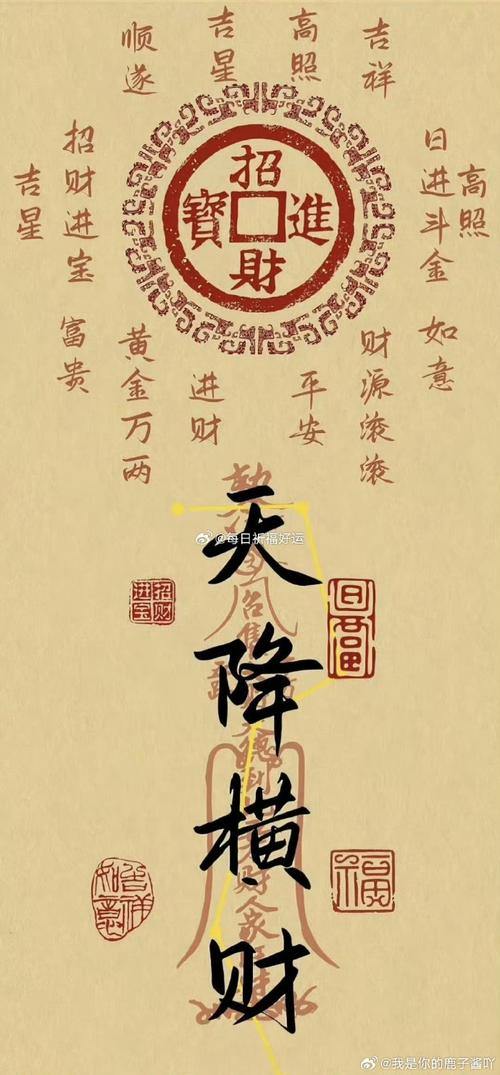 吉星
高照
顺遂
吉祥
招财进宝
日进斗金
吉星
高照
招財進寶
富贵
如意
黄金万两
进财
平安
财源滚滚
天降横财
@每日祈福好运
招财进宝
福
@我是你的鹿子酱吖